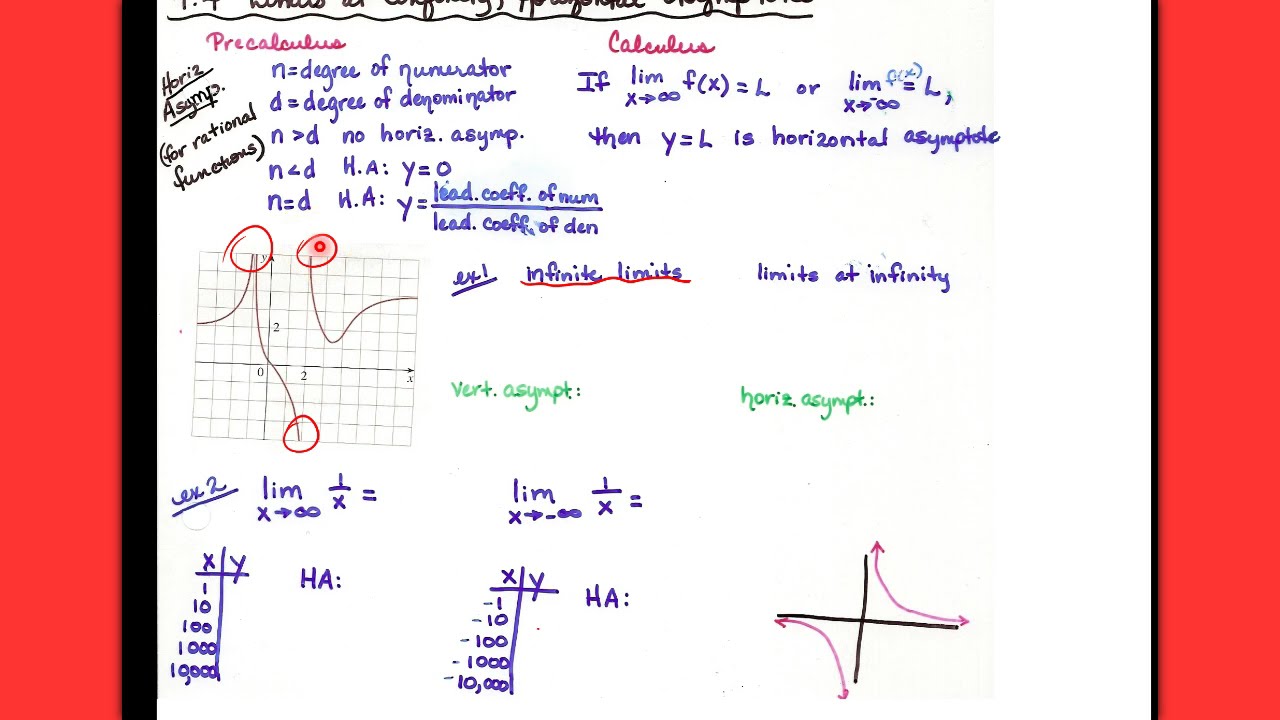 1.4 Limits at Infinity, Horizontal Asymptotes
Precalculus
Horiz
Asymp.
(for rational
functions)
n=degree of numerator
d=degree of denominator
n>d no horiz. asymp.
n<d H.A: y=0
n=d H.A: y= lead. coeff. of num
lead. coeff. of den
Calculus
If lim f(x)=L or lim f(x) = L,
x→∞ x→-∞
then y=L is horizontal asymptote
y
2
0
2
x
ex1 infinite limits limits at infinity
vert. asympt: horiz. asympt.:
ex2 lim 1/x =
x→∞
lim 1/x =
x→-∞
x y HA:
1
10
100
1000
10,000
x y HA:
-1
-10
-100
-1000
-10,000